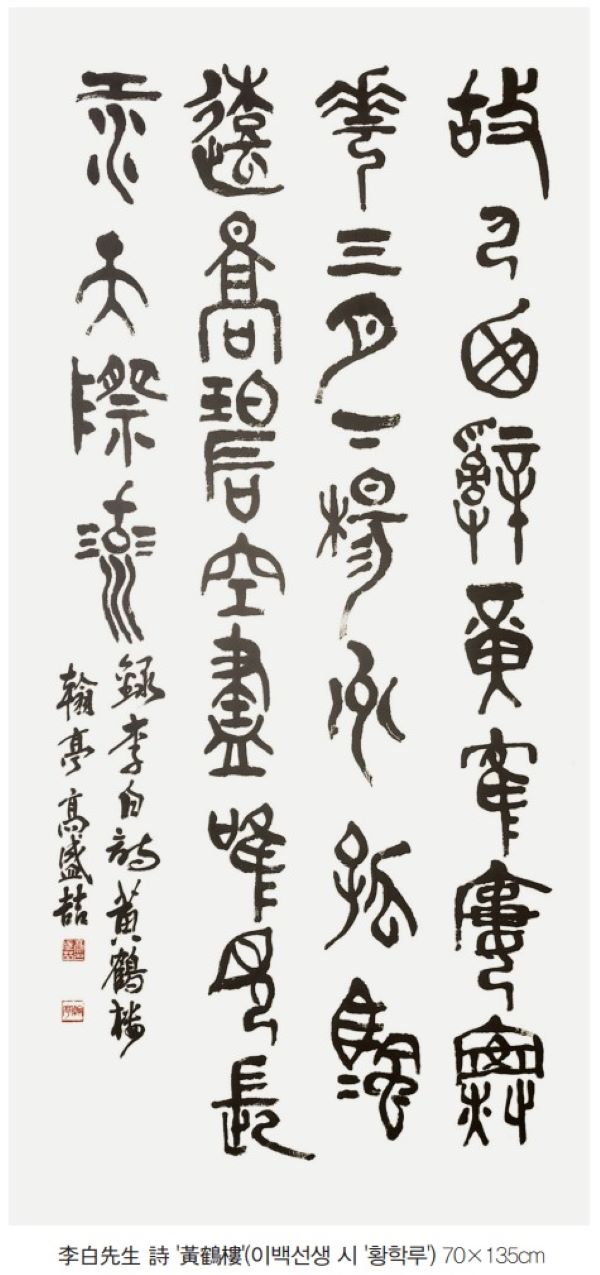 故人西辭黃隺廔煙
華三月下楊州孤颿
遠景碧空盡唯見長
江天際流
録李白詩黃鶴樓
翰亭 高盛喆
李白先生 詩 '黃鶴樓'(이백선생 시 '황학루') 70×135cm